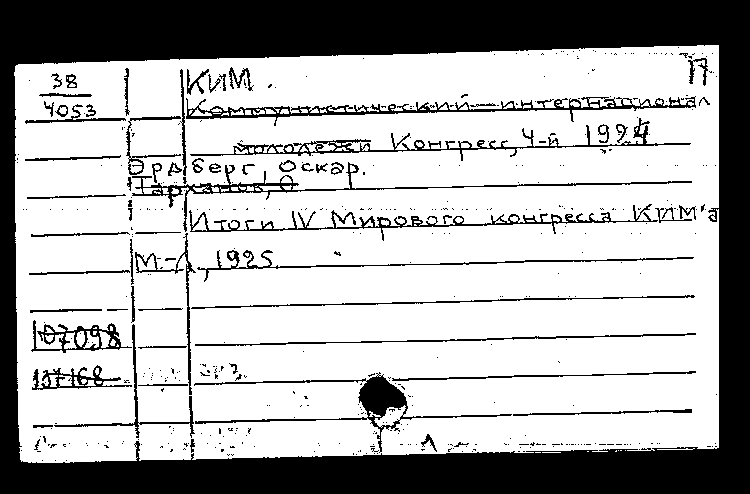 38
4053
17
КИМ.
Коммунистический интернационал
молодежи Конгресс, 4-й 1924
Эрдберг, Оскар.
Тарханов, О
Итоги IV Мирового конгресса КИМ'а
М.-Л., 1925.
107098
137168
экз.